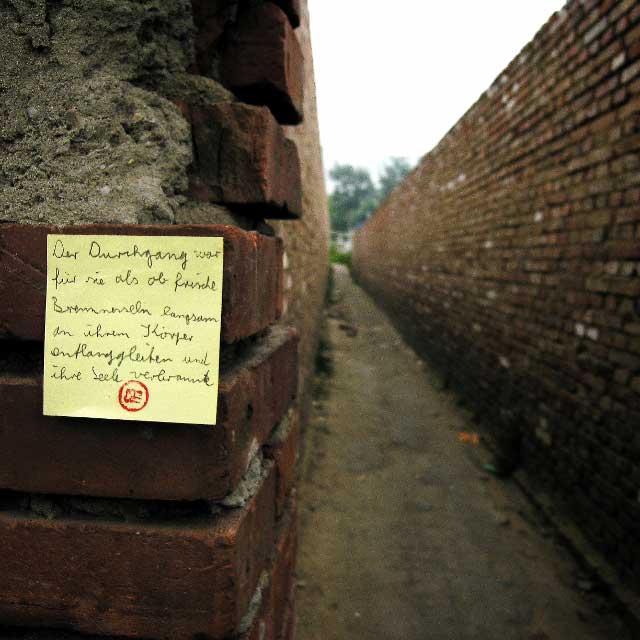 Der Durchgang war
für sie als ob frische
Brennesseln langsam
an ihrem Körper
entlanggleiten und
ihre Seele verbrannte